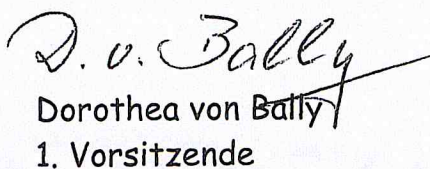 D. v. Bally
Dorothea von Bally
1. Vorsitzende